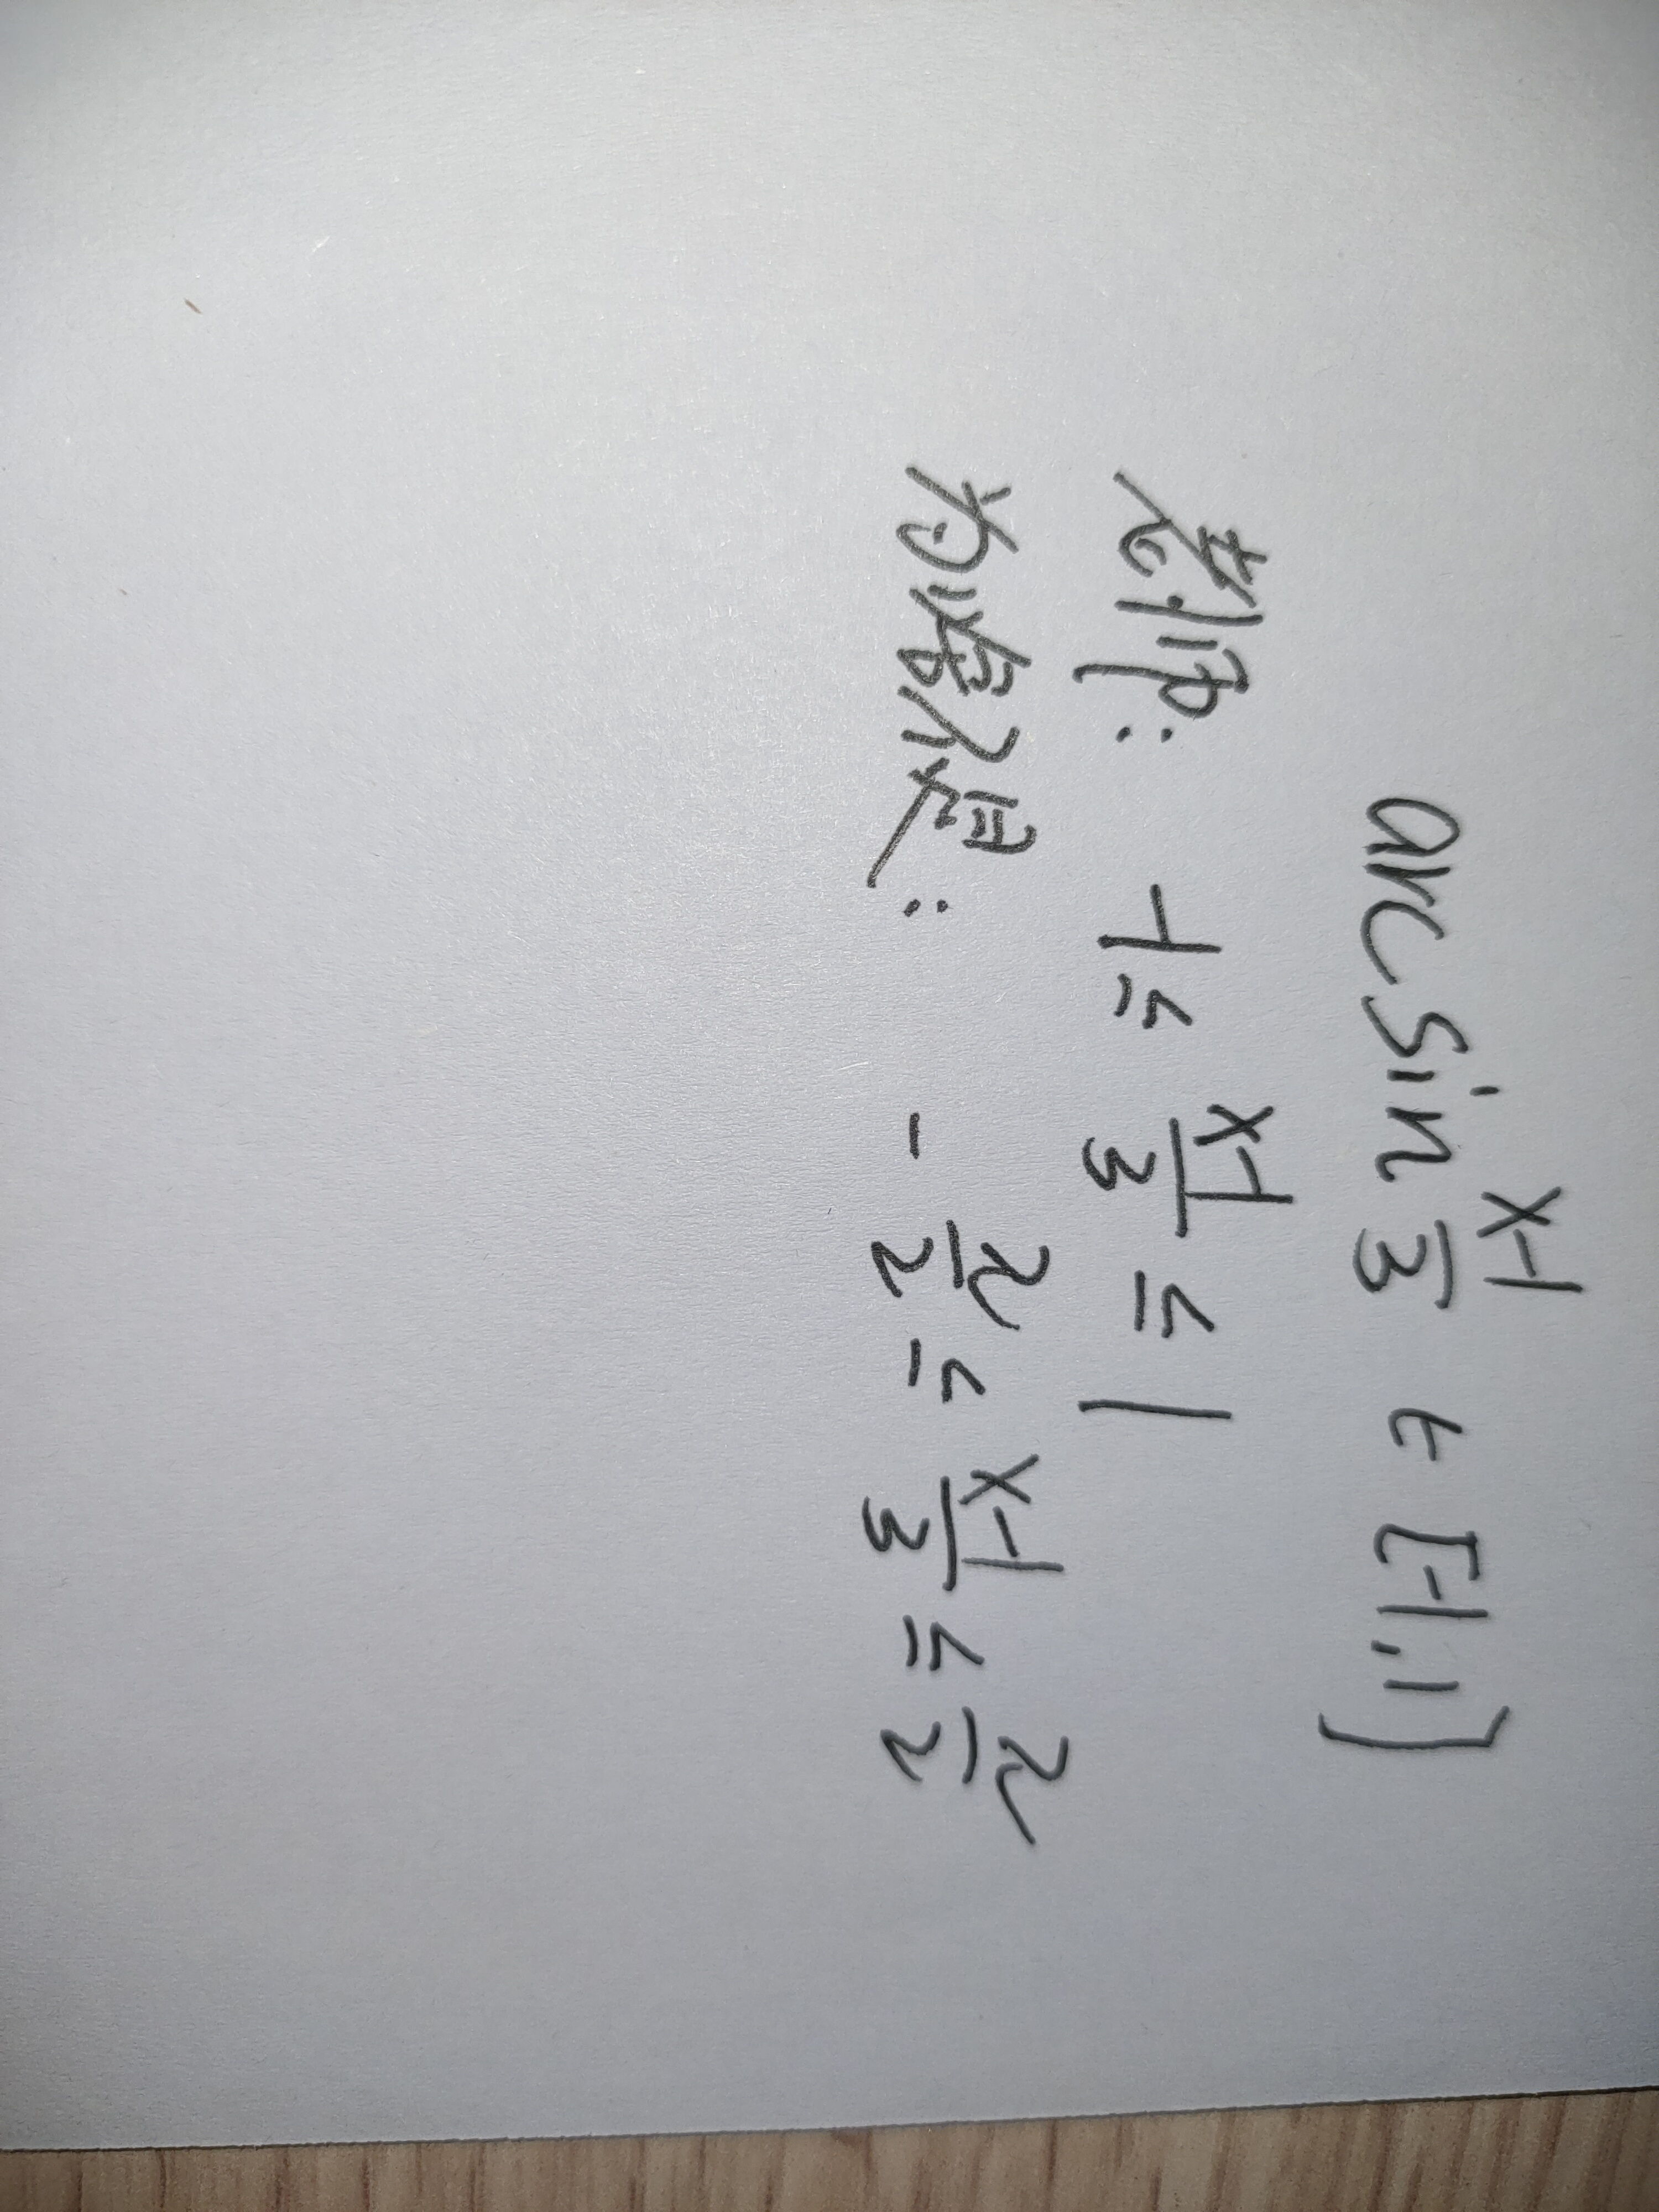 arcsin (x-1)/3 ∈ [-1,1]
老师: -1 ≤ (x-1)/3 ≤ 1
为啥不是: -π/2 ≤ (x-1)/3 ≤ π/2